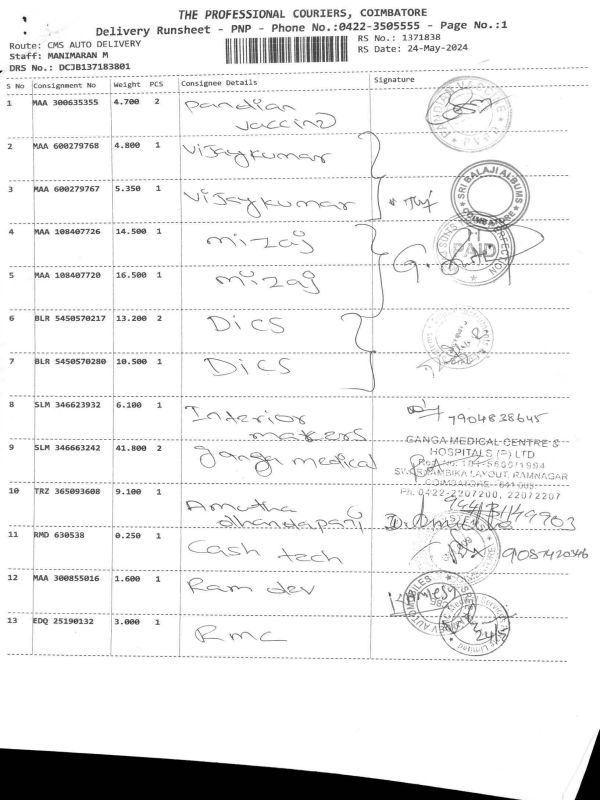 THE PROFESSIONAL COURIERS, COIMBATORE
Delivery Runsheet - PNP - Phone No.:0422-3505555 - Page No.:1
Route: CMS AUTO DELIVERY
RS No.: 1371838
Staff: MANIMARAN M
RS Date: 24-May-2024
DRS No.: DCJB137183801
S No Consignment No Weight PCS Consignee Details Signature
1 MAA 300635355 4.700 2 Pandian
vaccine
2 MAA 600279768 4.800 1 Vijaykumar
3 MAA 600279767 5.350 1 Vijaykumar
SRI BALAJI ALBUMS
COIMBATORE
4 MAA 108407726 14.500 1 mizaj
PAID
5 MAA 108407720 16.500 1 mizaj
6 BLR 5450570217 13.200 2 DICS
7 BLR 5450570280 10.500 1 DICS
8 SLM 346623932 6.100 1 Interior
makers
7904838645
9 SLM 346663242 41.800 2 ganga medical
GANGA MEDICAL CENTRE &
HOSPITALS (P) LTD
SWARNAMBIKA LAYOUT, RAMNAGAR
COIMBATORE - 641 009
Ph. 0422-2207200, 22072207
10 TRZ 365093608 9.100 1 Amutha
dhandapani
11 RMD 630538 0.250 1 Cash tech
9087420346
12 MAA 300855016 1.600 1 Ram dev
13 EDQ 25190132 3.000 1 RMC